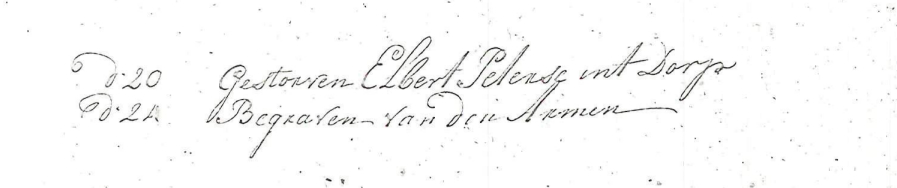 d. 20 Gestorven Elbert Peterse int Dorp
d. 24 Begraven van den Armen